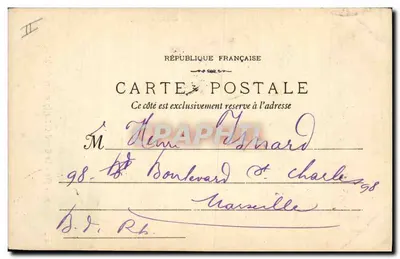 II
RÉPUBLIQUE FRANÇAISE
CARTE POSTALE
Ce côté est exclusivement reservé à l'adresse
M Henri Isnard
98 - Bd Boulevard St Charles 98
Marseille
B. d. Rh.